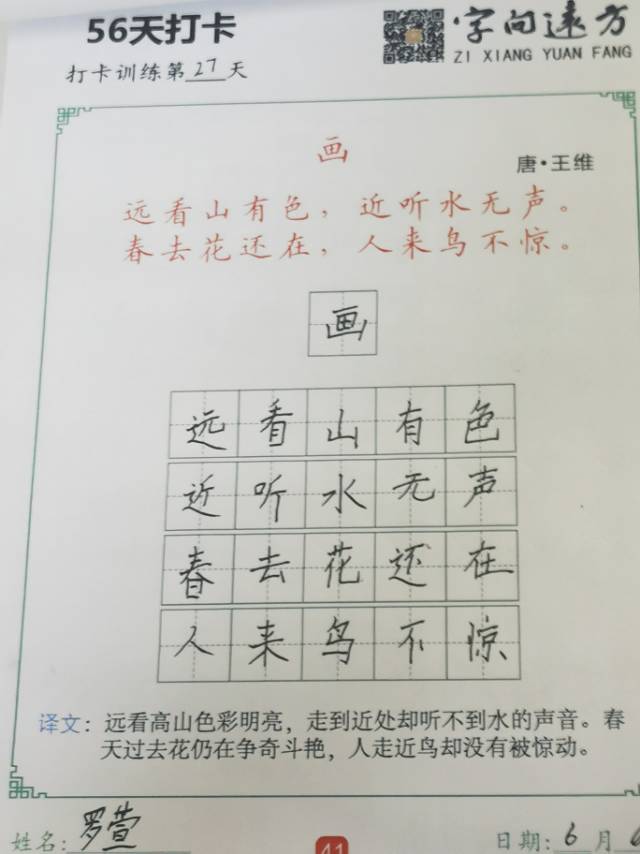 56天打卡
字向远方
ZI XIANG YUAN FANG
打卡训练第27天
画
唐·王维
远看山有色，近听水无声。
春去花还在，人来鸟不惊。
画
远看山有色
近听水无声
春去花还在
人来鸟不惊
译文：远看高山色彩明亮，走到近处却听不到水的声音。春
天过去花仍在争奇斗艳，人走近鸟却没有被惊动。
姓名：罗萱
41
日期：6月